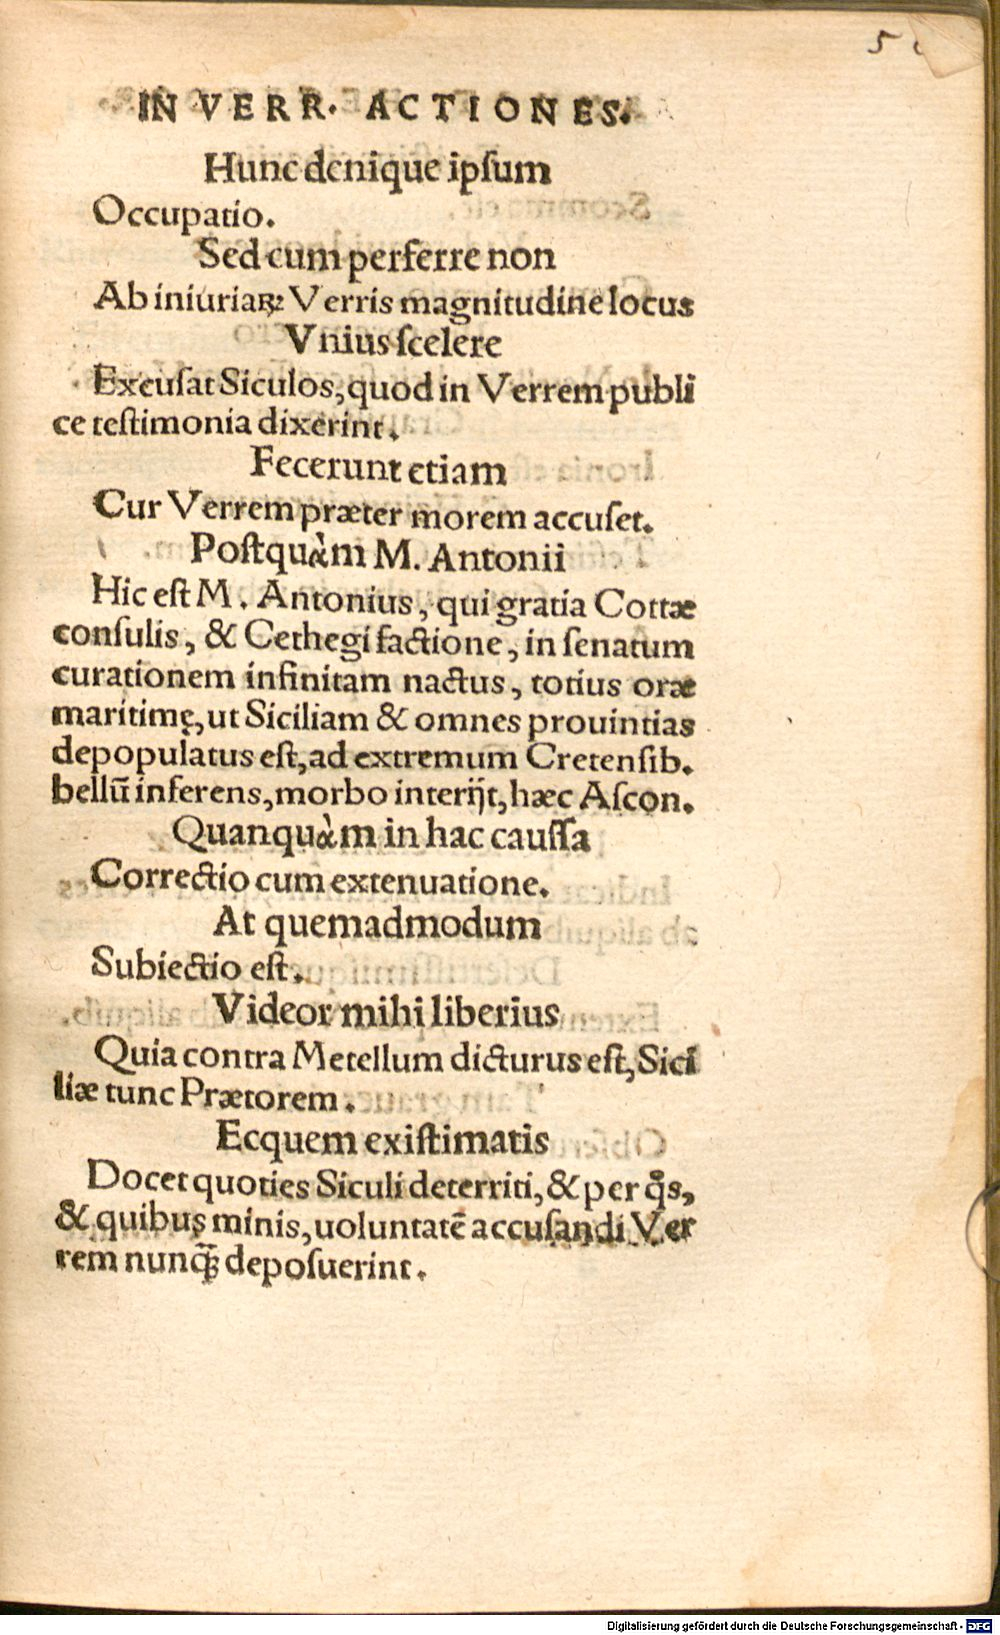 5
IN VERR. ACTIONES.
Hunc denique ipſum
Occupatio.
Sed cum perferre non
Ab iniuriaꝝ Verris magnitudine locus
Vnius ſcelere
Excuſat Siculos, quod in Verrem publi
ce teſtimonia dixerint.
Fecerunt etiam
Cur Verrem præter morem accuſet.
Poſtquàm M. Antonii
Hic eſt M. Antonius, qui gratia Cottæ
conſulis, & Cethegi factione, in ſenatum
curationem infinitam nactus, totius oræ
maritimę, ut Siciliam & omnes prouintias
depopulatus eſt, ad extremum Cretenſib.
bellū inferens, morbo interijt, hæc Aſcon.
Quanquàm in hac cauſſa
Correctio cum extenuatione.
At quemadmodum
Subiectio eſt.
Videor mihi liberius
Quia contra Metellum dicturus eſt, Sici
liæ tunc Prætorem.
Ecquem exiſtimatis
Docet quoties Siculi deterriti, & per q̄s,
& quibus minis, uoluntatē accuſandi Ver
rem nunq̄ꝫ depoſuerint.
Digitalisierung gefördert durch die Deutsche Forschungsgemeinschaft - DFG